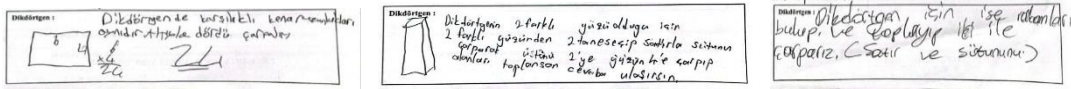 Dikdörtgen :
Dikdörtgende karşılıklı kenar uzunlukları
aynıdır. dördü çarpılır
6
4
6
x4
24
24
Dikdörtgen :
Dikdörtgenin 2 farklı yüzü olduğu için
2 farklı yüzünden 2 tane seçip satırla sütunu
çarparak üstünü 2'ye yüzün 4'e çarpıp
alanları toplarsan cevaba ulaşırsın.
Dikdörtgen :
Dikdörtgen için ise rakamları
bulup, ve toplayıp iki ile
çarparız. (Satır ve sütununu)